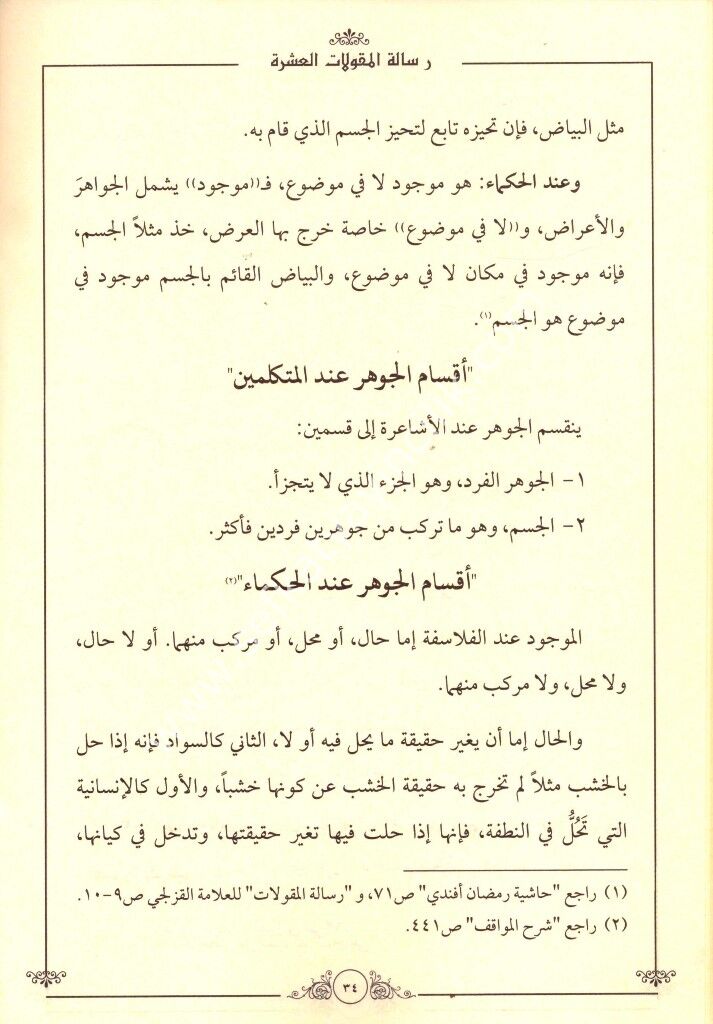 رسالة المقولات العشرة
مثل البياض، فإن تحيزه تابع لتحيز الجسم الذي قام به.
وعند الحكماء: هو موجود لا في موضوع، فـ((موجود)) يشمل الجواهرَ
والأعراض، و((لا في موضوع)) خاصة خرج بها العرض، خذ مثلاً الجسم،
فإنه موجود في مكان لا في موضوع، والبياض القائم بالجسم موجود في
موضوع هو الجسم(١).
"أقسام الجوهر عند المتكلمين"
ينقسم الجوهر عند الأشاعرة إلى قسمين:
١- الجوهر الفرد، وهو الجزء الذي لا يتجزأ.
٢- الجسم، وهو ما تركب من جوهرين فردين فأكثر.
"أقسام الجوهر عند الحكماء"(٢)
الموجود عند الفلاسفة إما حال، أو محل، أو مركب منهما. أو لا حال،
ولا محل، ولا مركب منهما.
والحال إما أن يغير حقيقة ما يحل فيه أو لا، الثاني كالسواد فإنه إذا حل
بالخشب مثلاً لم تخرج به حقيقة الخشب عن كونها خشباً، والأول كالإنسانية
التي تَحُلُّ في النطفة، فإنها إذا حلت فيها تغير حقيقتها، وتدخل في كيانها،
(١) راجع "حاشية رمضان أفندي" ص٧١، و "رسالة المقولات" للعلامة القزلجي ص٩-١٠.
(٢) راجع "شرح المواقف" ص٤٤١.
٣٤